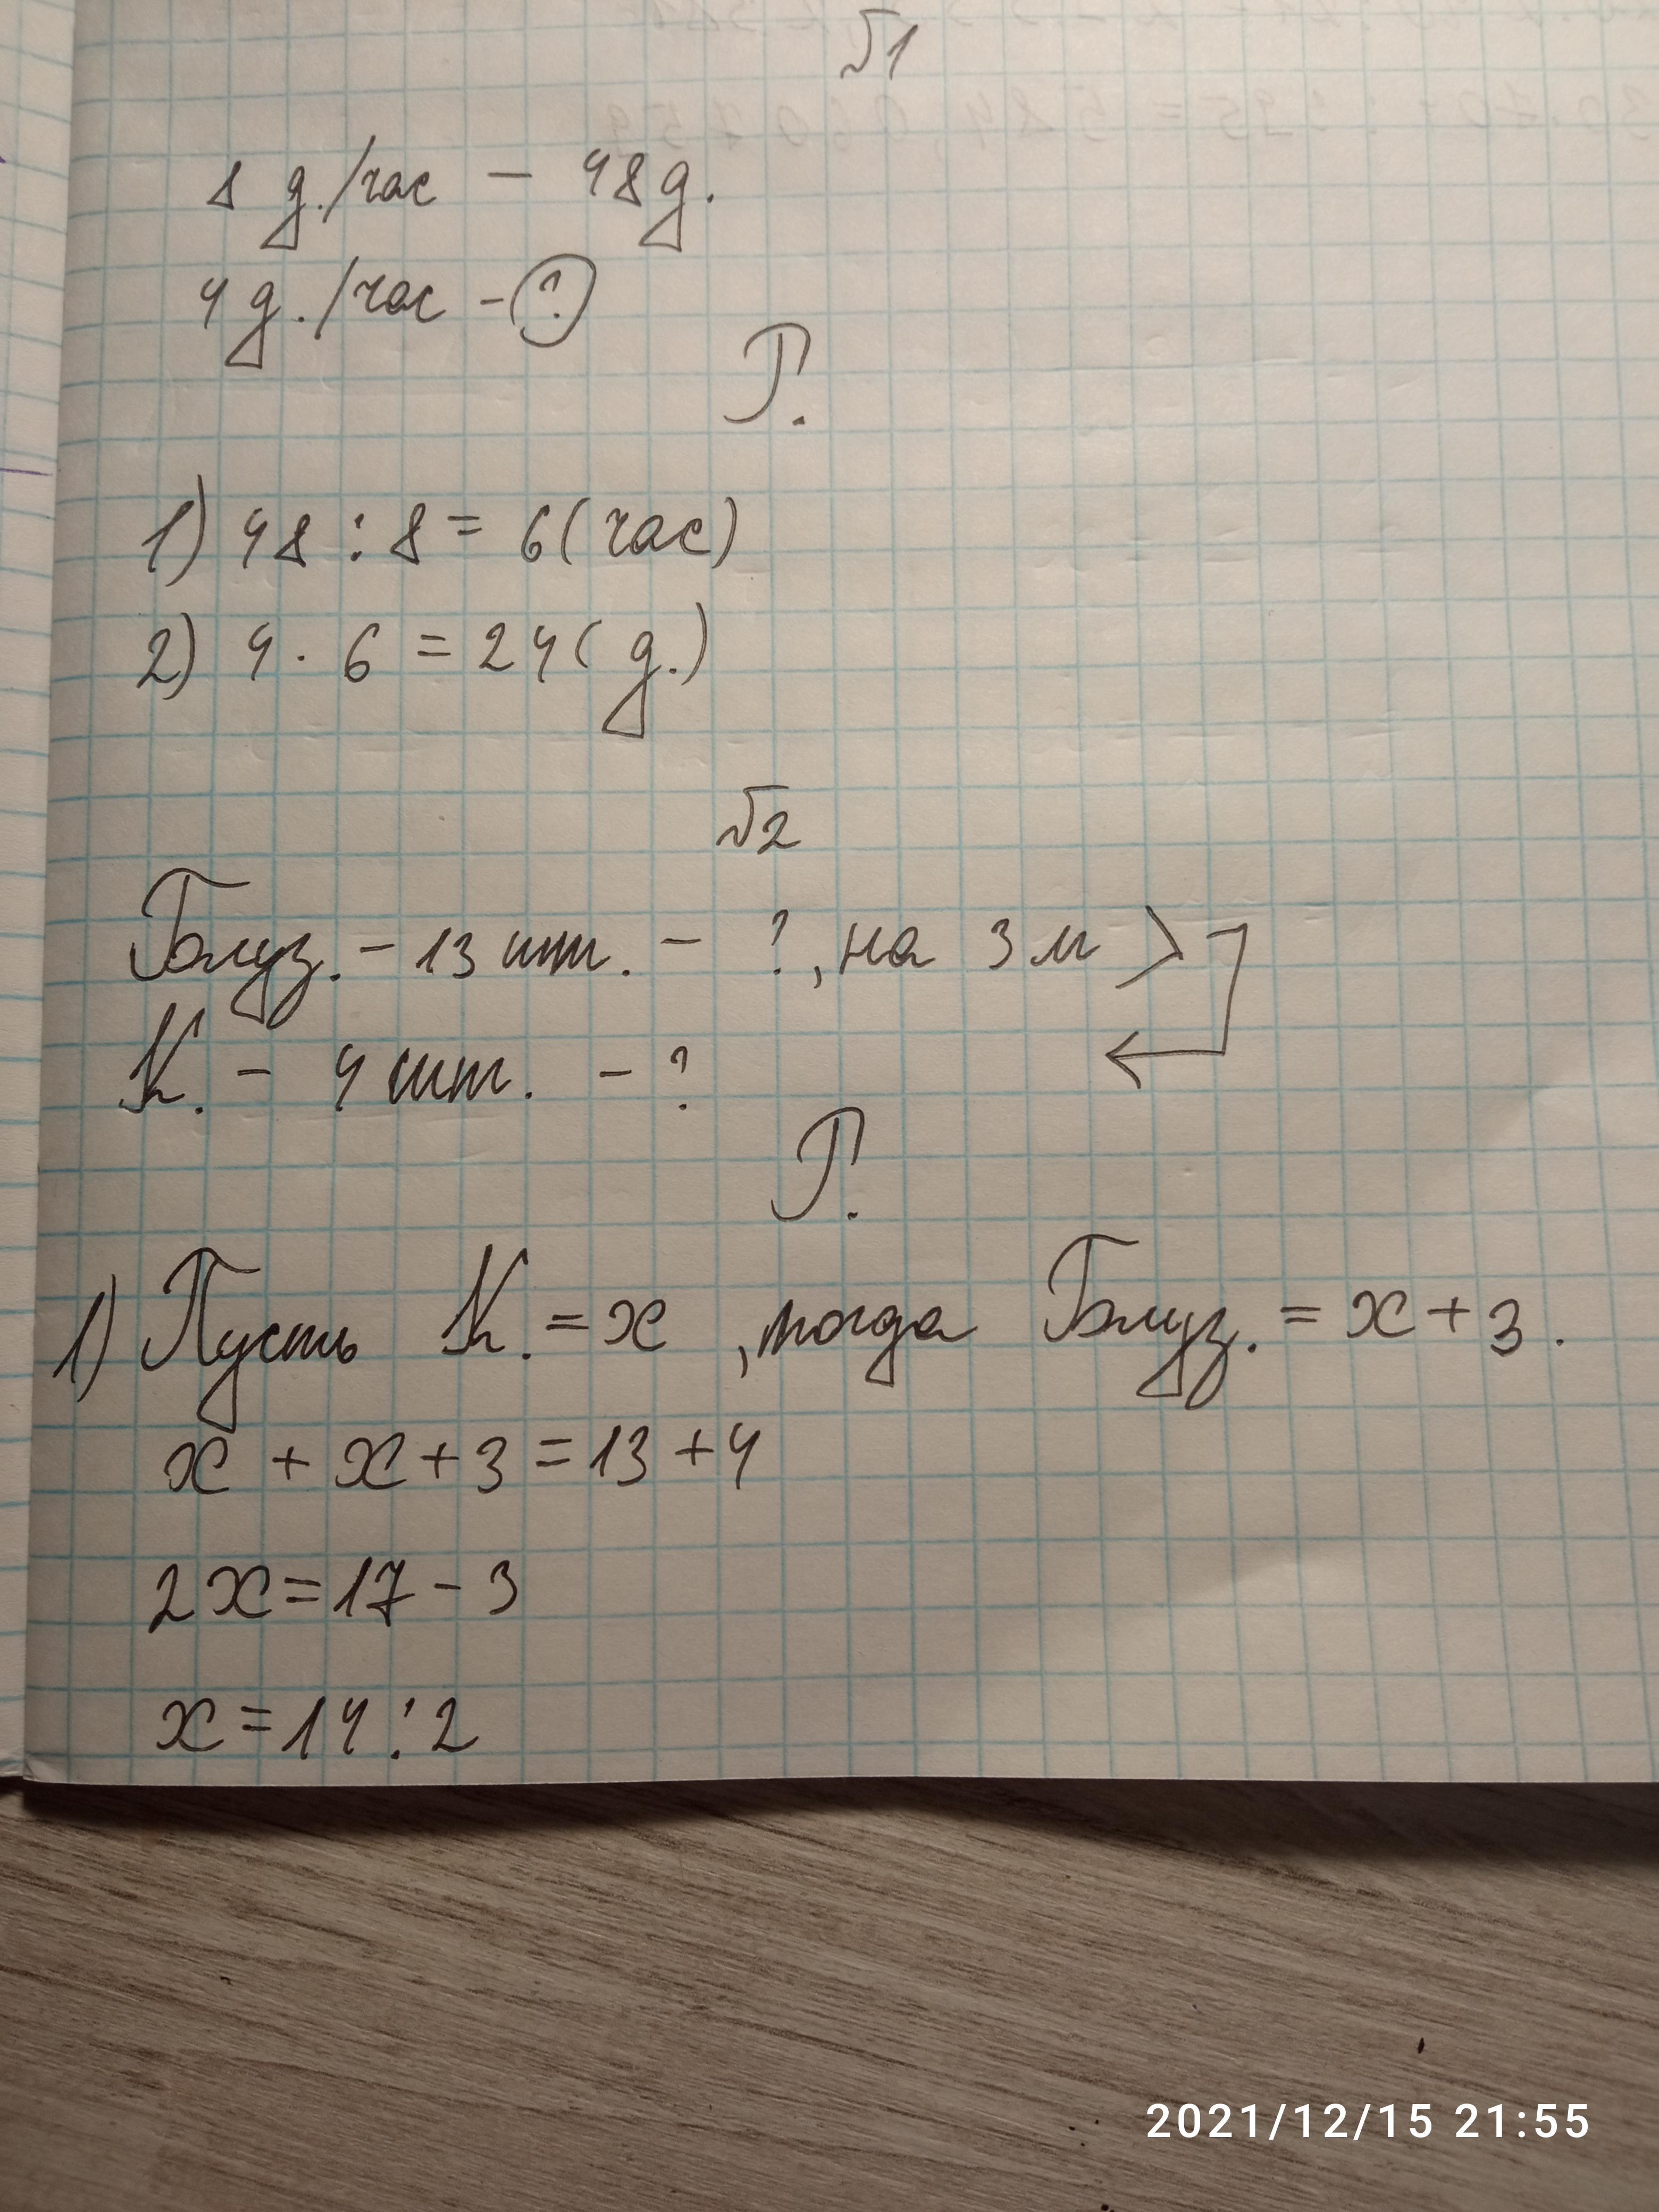 №1
8 д./час – 48 д.
4 д./час – ?
Р.
1) 48 : 8 = 6 (час)
2) 4 · 6 = 24 (д.)
№2
Блуз. – 13 шт. – ?, на 3 м >
К. – 4 шт. – ?
Р.
1) Пусть К. = x, тогда Блуз. = x + 3.
x + x + 3 = 13 + 4
2x = 17 – 3
x = 14 : 2
2021/12/15 21:55